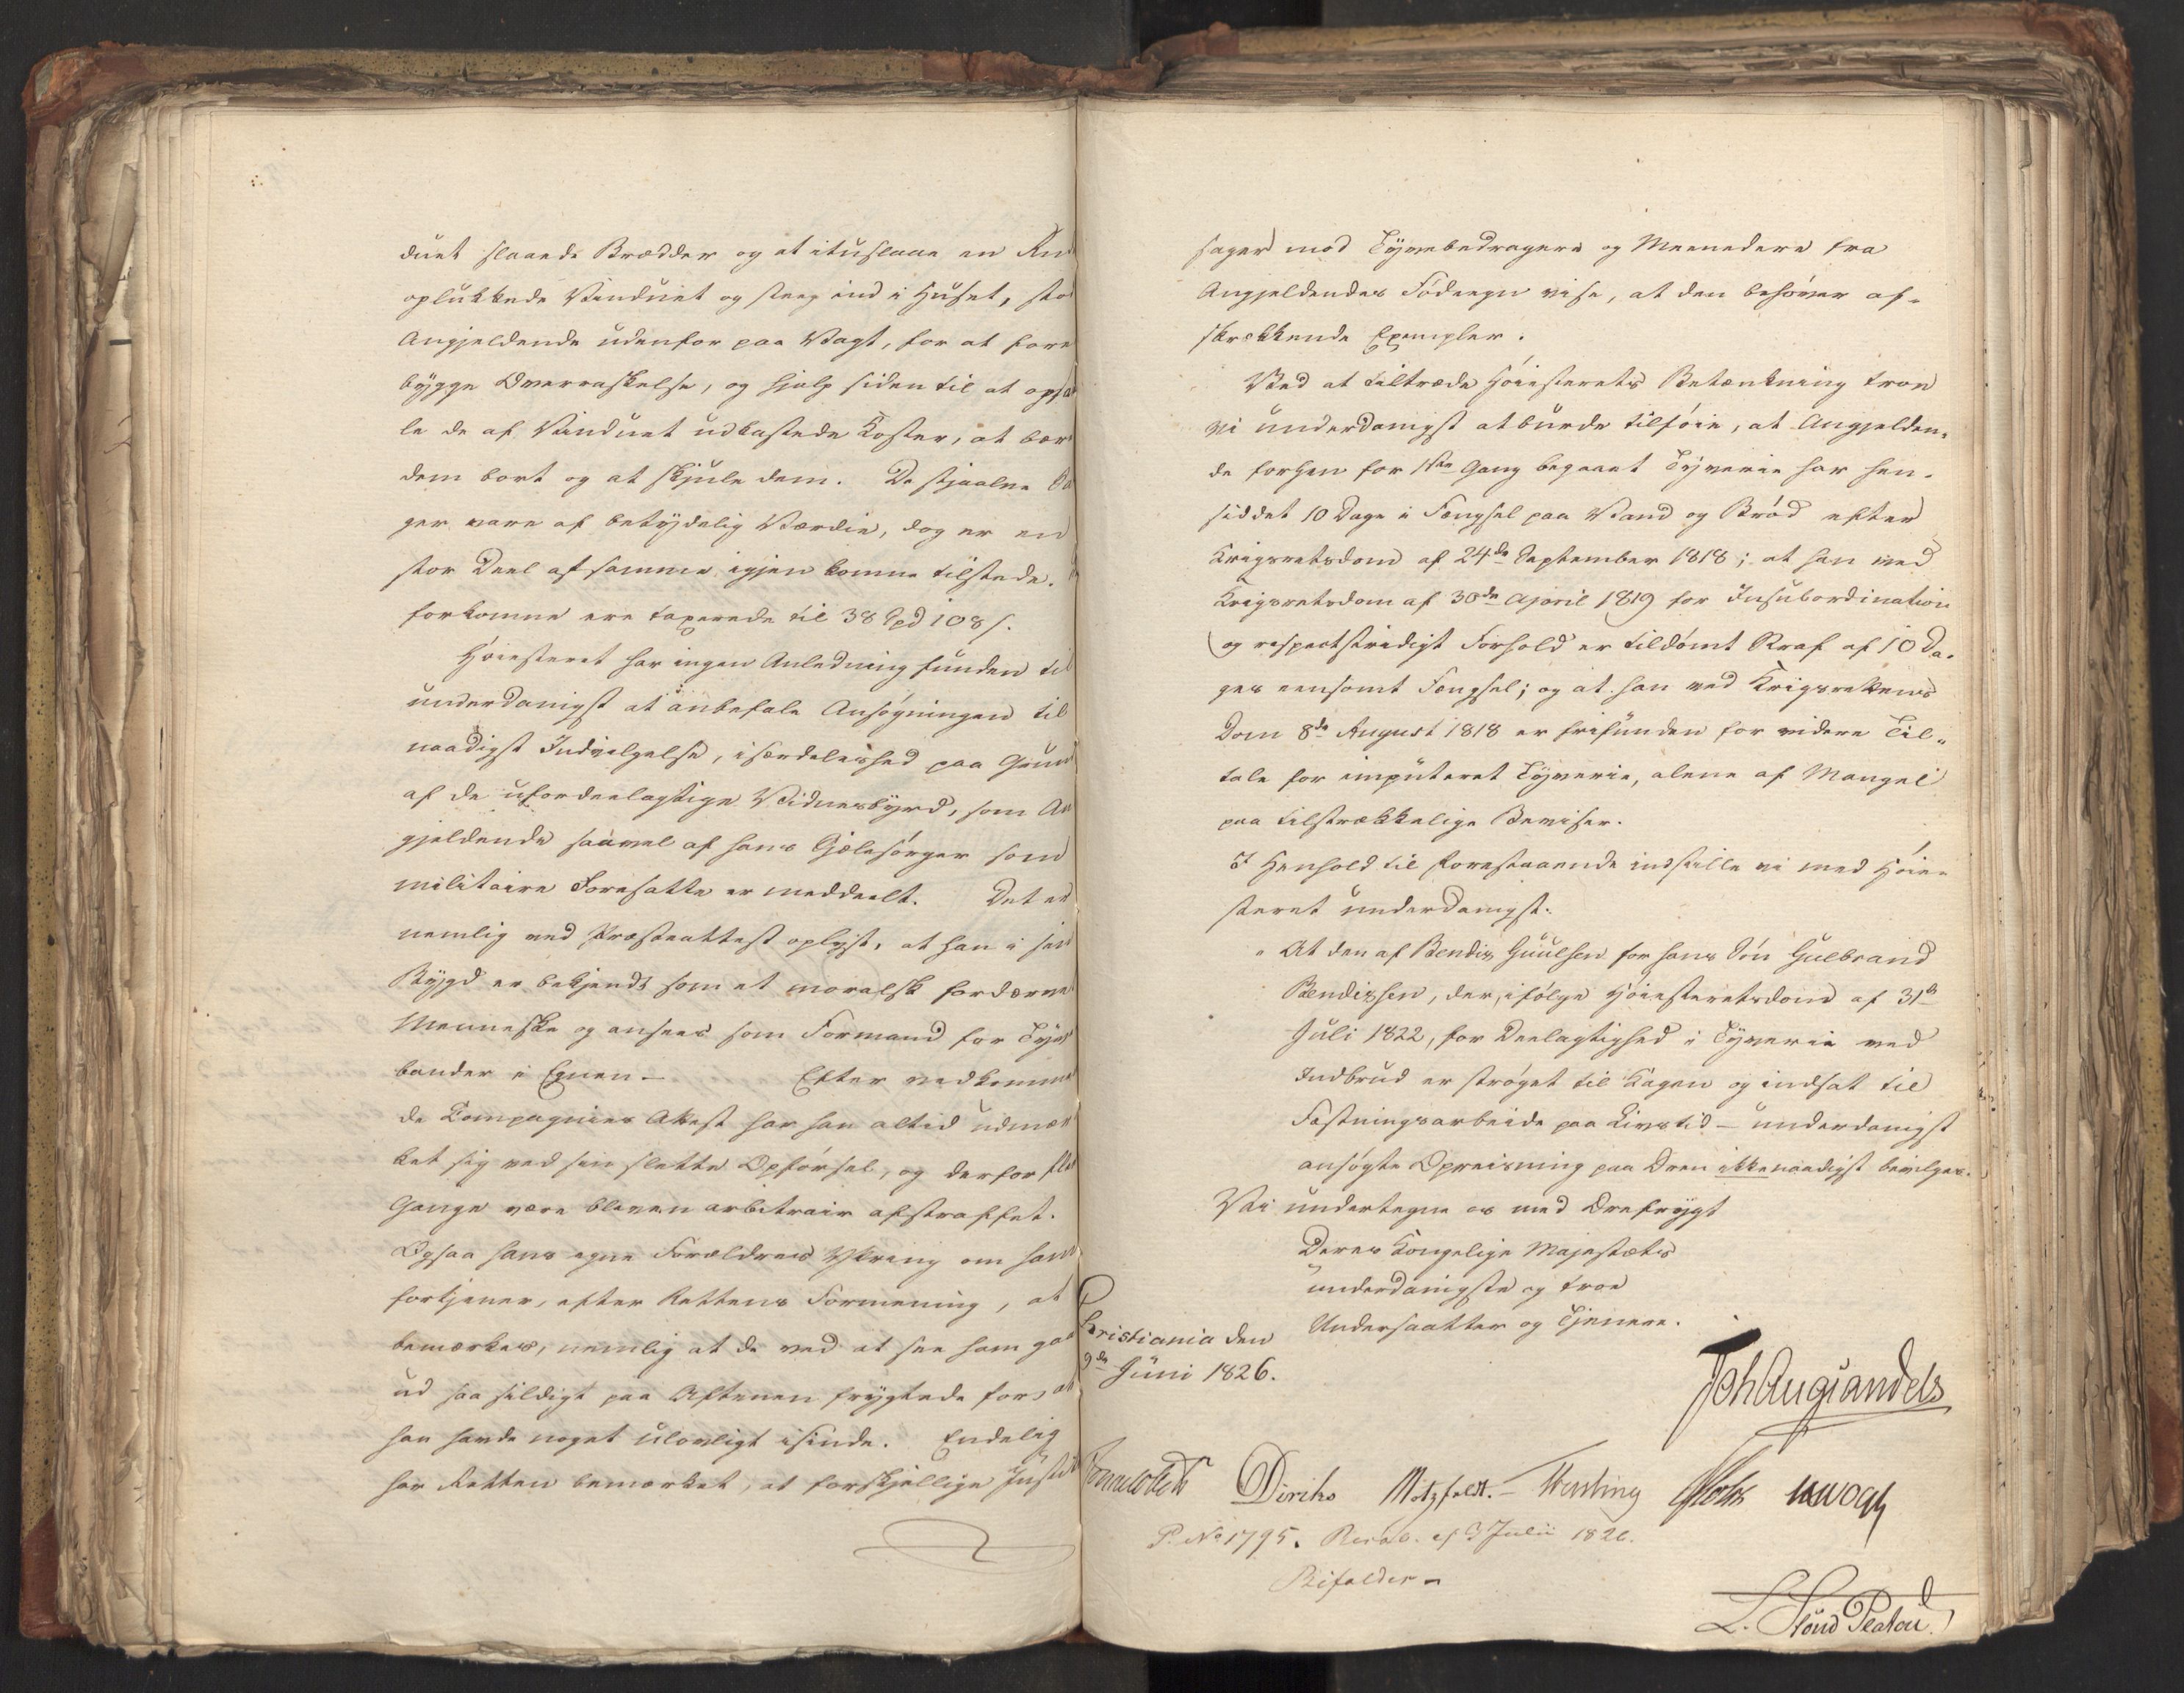 duet slaaede Brædder og at ituslaae en Ru
oplukkede Vinduet og steeg ind i Huset, stod
Angjeldende udenfor paa Vagt, for at fore
bygge Overraskelse, og hjalp siden til at opsa
le de af Vinduet udkastede Koster, at bær
dem bort og at skjule dem. De stjaalne Sa
ger vare af betydelig Værdie, dog er en
stor Deel af samme igjen komne tilstede.
forkomne ere taxerede til 38 Spd 108 s.
Høiesteret har ingen Anledning funden til
underdanigst at anbefale Ansøgningen til
naadigst Indvilgelse, isærdeleshed paa Grund
af de ufordeelagtige Vidnesbyrd, som An
gjeldende saavel af hans Sjelesørger som
militaire Foresatte er meddeelt. Det er
nemlig ved Præsteattest oplyst, at han i sin
Bygd er bekjendt som et moralsk fordærvet
Menneske og ansees som Formand for Tyve
bander i Egnen – Efter vedkommen
de Compagnies Attest har han altid udmær
ket sig ved sin slette Opførsel, og derfor fle
Gange være bleven arbitrair afstraffet.
Ogsaa hans egne Forældres Yttring om ham
fortjener, efter Rettens Formening, at
bemærkes, nemlig at de ved at see ham gaa
ud saa sildigt paa Aftenen frygtede for, at
han havde noget ulovligt isinde. Endelig
har Retten bemærket, at forskjellige Justits
sager mod Tyvebedragere og Meenedere fra
Angjeldendes Fødeegn vise, at den behøver af-
skrækkende Exempler.
Ved at tiltræde Høiesterets Betænkning troe
vi underdanigst at burde tilføie, at Angjelden-
de forhen for 1ste Gang begaaet Tyverie har hen-
siddet 10 Dage i Fængsel paa Vand og Brød efter
Krigsretsdom af 24de September 1818; at han ved
Krigsretsdom af 30de April 1819 for Insubordination
og respectstridigt Forhold er tildømt Straf af 10 Da-
ges eensomt Fængsel; og at han ved Krigsrettens
Dom 8de August 1818 er frifunden for videre Til-
tale for imputeret Tyverie, alene af Mangel
paa tilstrækkelige Beviser.
I Henhold til Forestaaende indstille vi med Høie-
steret underdanigst:
" At den af Bendix Guulsen for hans Søn Gulbrand
Bendixsen, der, ifølge Høiesteretsdom af 31te
Juli 1822, for Deelagtighed i Tyverie ved
Indbrud er strøget til Kagen og indsat til
Fæstningsarbeide paa Livstid – underdanigst
ansøgte Opreisning paa Æren ikke naadigst bevilges.
Vi undertegne os med Ærefrygt
Deres Kongelige Majestæts
underdanigste og troe
Undersaatter og Tjenere.
Christiania den
9de Juni 1826.
Joh Aug Sandels
Sommerhielm Diriks Motzfeldt. Krog
P. No 1795. Resol. af Julii 1826.
Bifaldes –
L. Stoud Platou